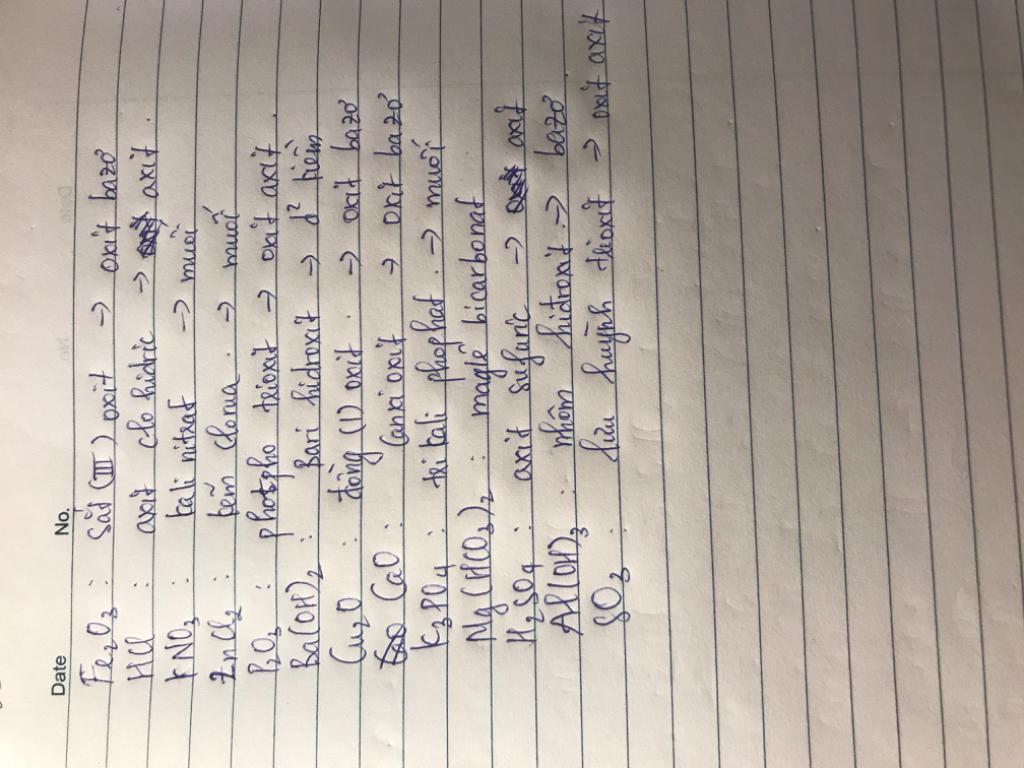 Date No.
Fe2O3 : sắt (III) oxit → oxit bazơ
HCl : axit clo hidric → axit
KNO3 : kali nitrat → muối
ZnCl2 : kẽm clorua. → muối
P2O3 : photpho trioxit → oxit axit.
Ba(OH)2 : Bari hidroxit → d² kiềm
Cu2O : đồng (I) oxit. → oxit bazơ
CaO : Canxi oxit → oxit bazơ
K3PO4 : tri kali phophat. → muối
Mg(HCO3)2 : magiê bicarbonat
H2SO4 : axit sufuric → axit
Al(OH)3 : nhôm hiđroxit. → bazơ
SO3 : lưu huỳnh trioxit → oxit axit